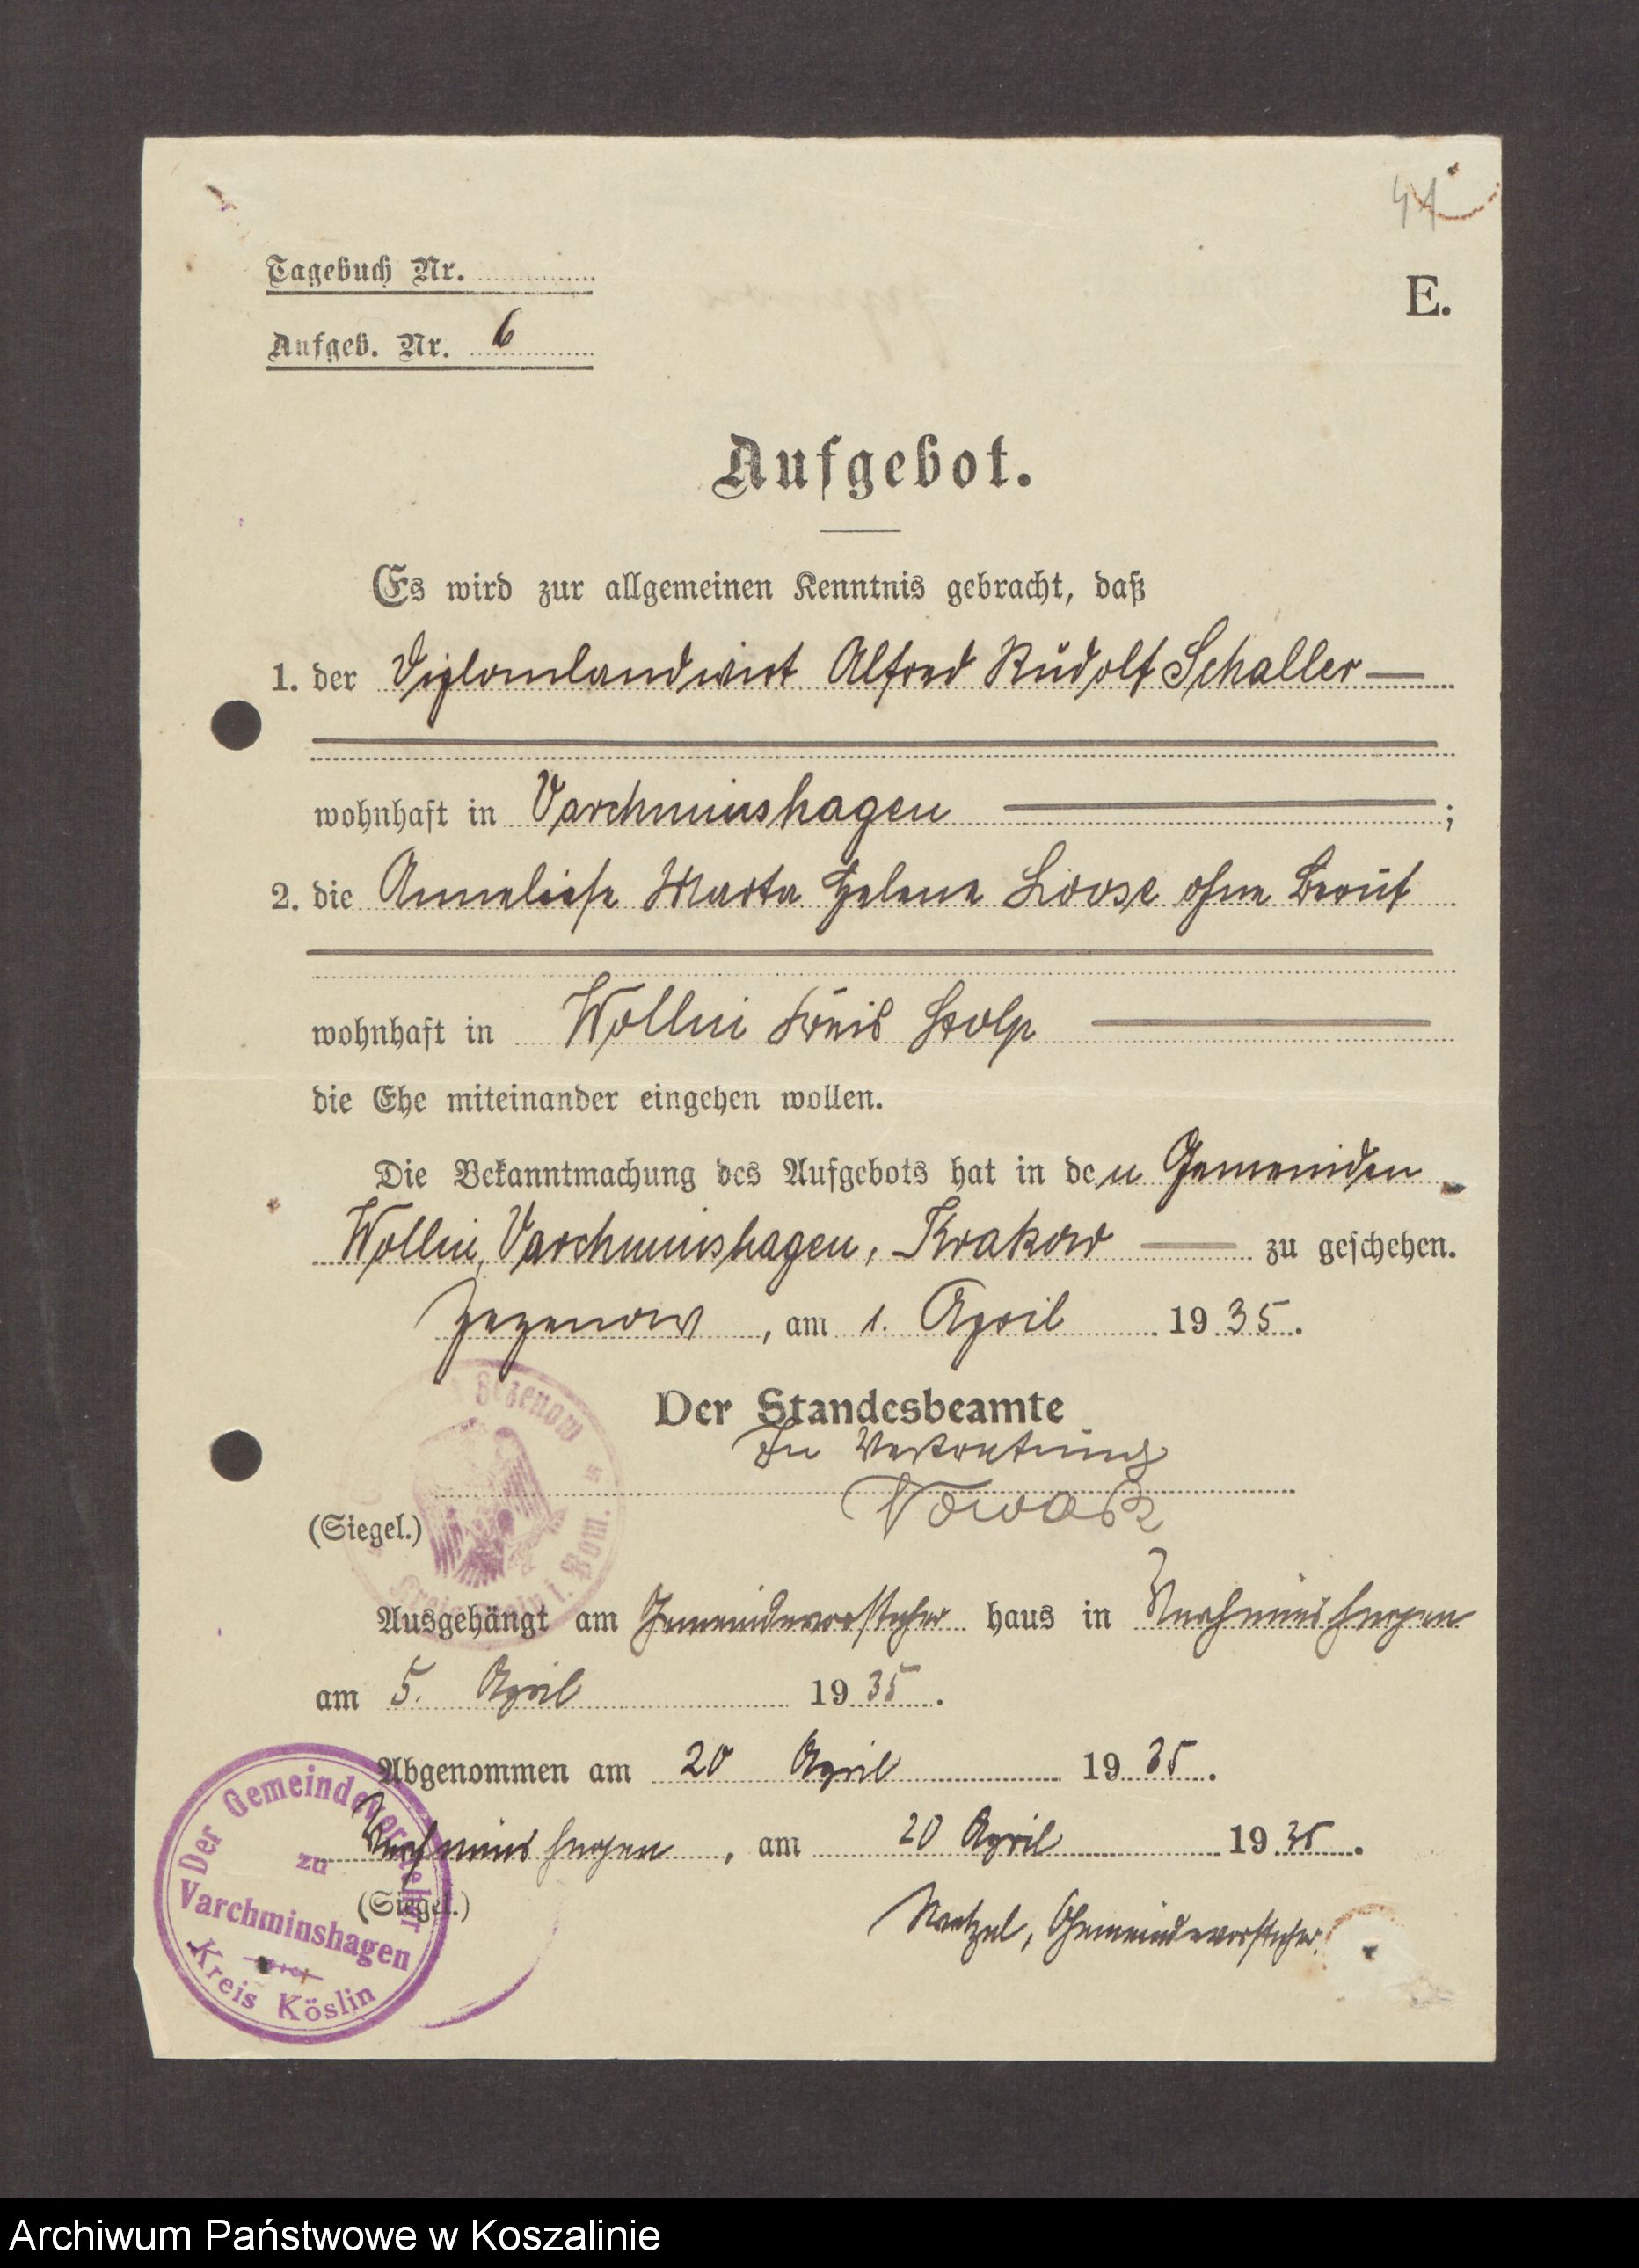 41
Tagebuch Nr.
E.
Aufgeb. Nr. 6
Aufgebot.
Es wird zur allgemeinen Kenntnis gebracht, daß
1. der Diplomlandwirt Alfred Rudolf Schaller
wohnhaft in Varchminshagen ;
2. die Anneliese Marta Helene Loose ohne Beruf
wohnhaft in Wollin Kreis Stolp
die Ehe miteinander eingehen wollen.
Die Bekanntmachung des Aufgebots hat in den Gemeinden
Wollin, Varchminshagen, Krakow zu geschehen.
Zezenow, am 1. April 1935.
Zezenow
Der Standesbeamte
In Vertretung
Nowack
(Siegel.)
i. Pom.
Ausgehängt am Gemeindevorsteher haus in Varchminshagen
am 5. April 1935.
Abgenommen am 20 April 1935.
Varchminshagen, am 20 April 1935.
(Siegel.)
Der Gemeindevorsteher
zu
Varchminshagen
Kreis Köslin
Gemeindevorsteher.
Archiwum Państwowe w Koszalinie